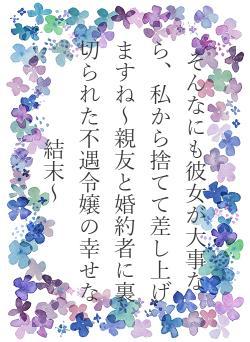 そんなにも彼女が大事な
ら、私から捨てて差し上げ
ますね～親友と婚約者に裏
切られた不遇令嬢の幸せな
結末～